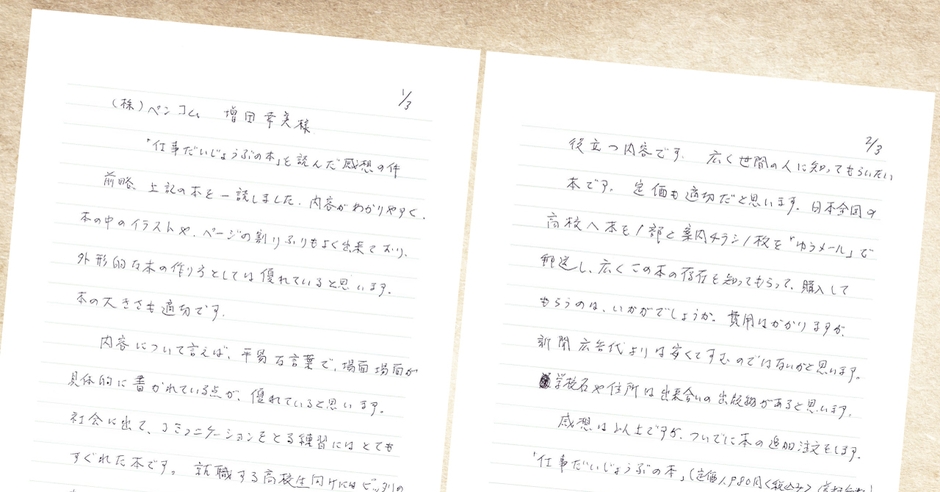 1/3
(株)ペンコム 増田幸美様
「仕事だいじょうぶの本」を読んだ感想の件
前略、上記の本を一読しました。内容がわかりやすく、
本の中のイラストや、ページの割りふりもよく出来ており、
外形的な本の作り方としては優れていると思います。
本の大きさも適切です。
内容について言えば、平易な言葉で、場面場面が
具体的に書かれている点が、優れていると思います。
社会に出て、コミュニケーションをとる練習にはとても
すぐれた本です。就職する高校生向けにはピッタリの
2/3
役立つ内容です。広く世間の人に知ってもらいたい
本です。定価も適切だと思います。日本全国の
高校へ本を1部と案内チラシ1枚を「ゆうメール」で
郵送し、広くこの本の存在を知ってもらって、購入して
もらうのは、いかがでしょうか。費用はかかりますが、
新聞広告代よりは安くてすむのではないかと思います。
学校名や住所は出来合いの出版物があると思います。
感想は以上ですが、ついでに本の追加注文をします。
「仕事だいじょうぶの本」(定価1,980円<税込み>